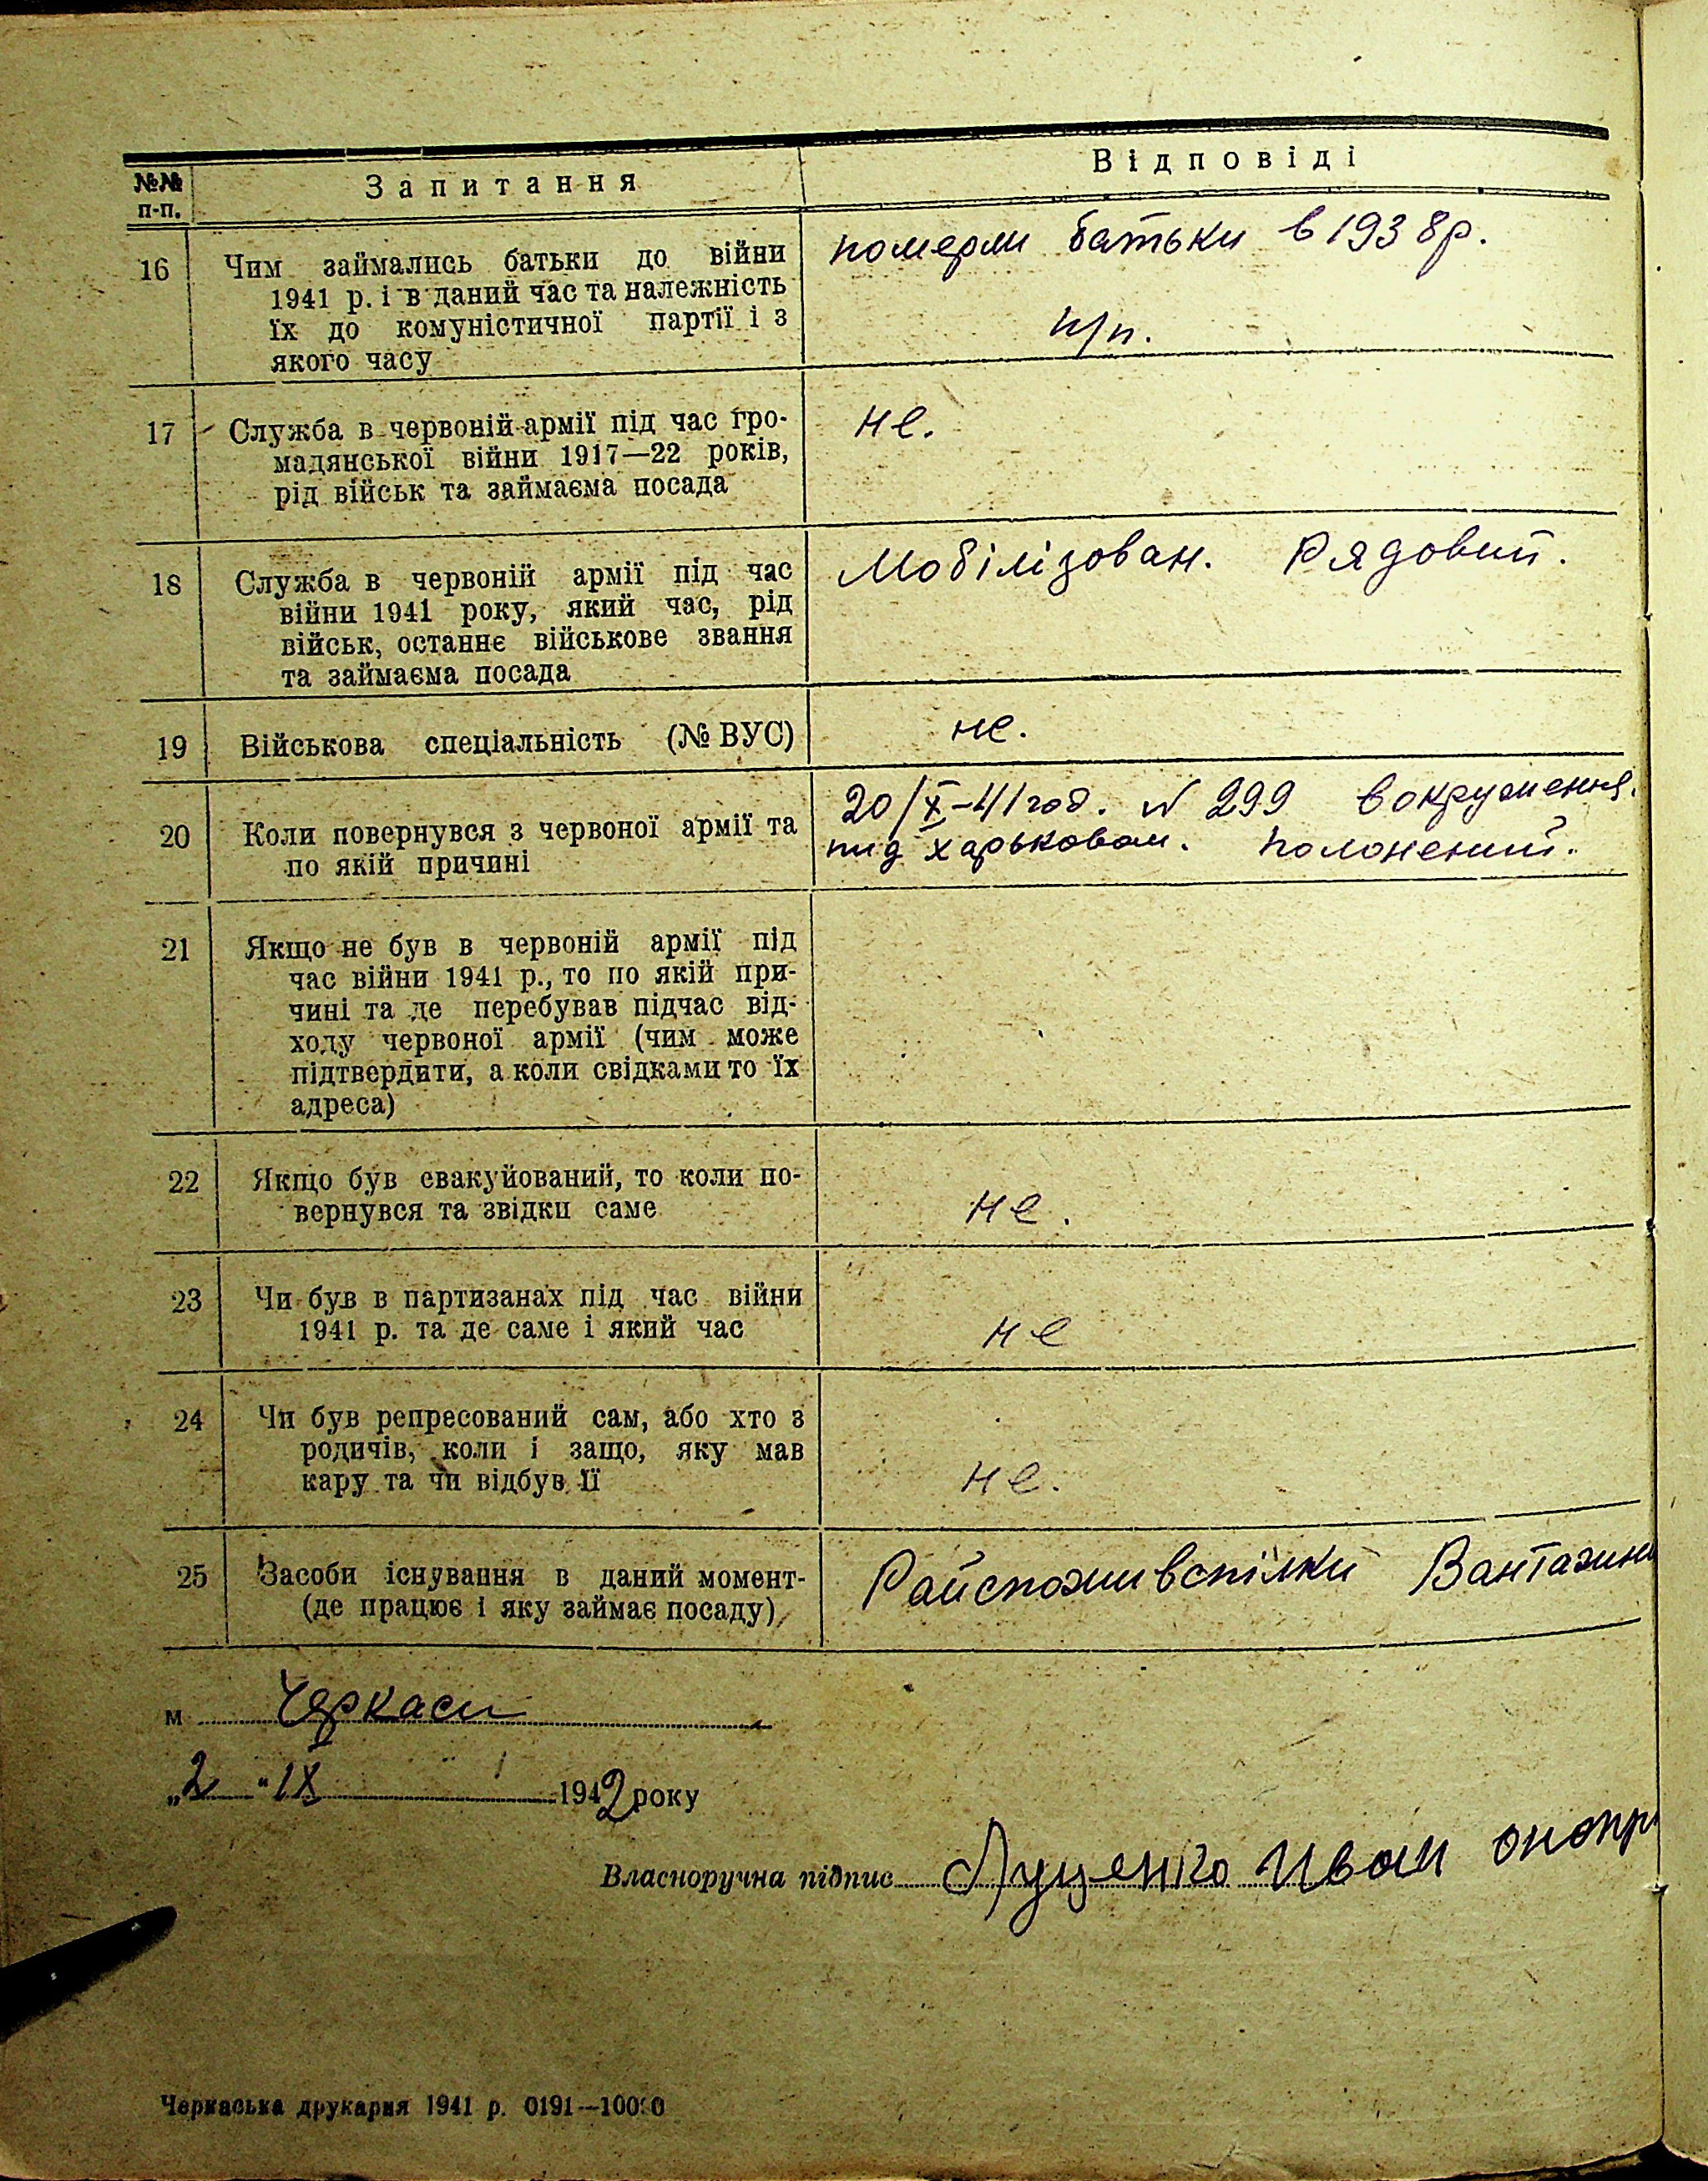 №№ п-п.
Запитання
Відповіді
16
Чим займались батьки до війни
1941 р. і в даний час та належність
їх до комуністичної партії і з
якого часу
померли батьки в 1938р.
н/п.
17
Служба в червоній армії під час гро-
мадянської війни 1917—22 років,
рід військ та займаєма посада
не.
18
Служба в червоній армії під час
війни 1941 року, який час, рід
військ, останнє військове звання
та займаєма посада
Мобілізован. Рядовий.
19
Військова спеціальність (№ ВУС)
не.
20
Коли повернувся з червоної армії та
по якій причині
20/X-41год. N 299 вокруження.
пид харьковом. Полонений.
21
Якщо не був в червоній армії під
час війни 1941 р., то по якій при-
чині та де перебував підчас від-
ходу червоної армії (чим може
підтвердити, а коли свідками то їх
адреса)
22
Якщо був евакуйований, то коли по-
вернувся та звідки саме
не.
23
Чи був в партизанах під час війни
1941 р. та де саме і який час
не
24
Чи був репресований сам, або хто з
родичів, коли і защо, яку мав
кару та чи відбув її
не.
25
Засоби існування в даний момент-
(де працює і яку займає посаду)
Райспоживспілки Вантажни
м Черкаси
„2 " IX 1942 року
Власноручна підпис Луценко Иван онопр
Черкаська друкарня 1941 р. 0191—10000